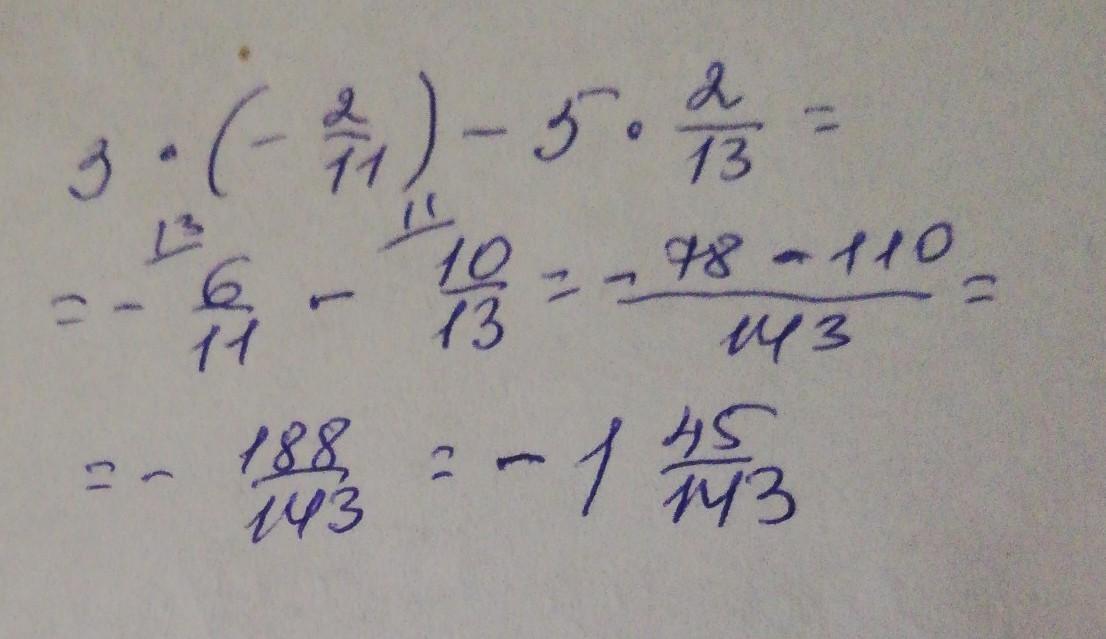 3 · (- 2/11) - 5 · 2/13 =
= - 6/11 ^13 - 10/13 ^11 = (-78 - 110)/143 =
= - 188/143 = - 1 45/143